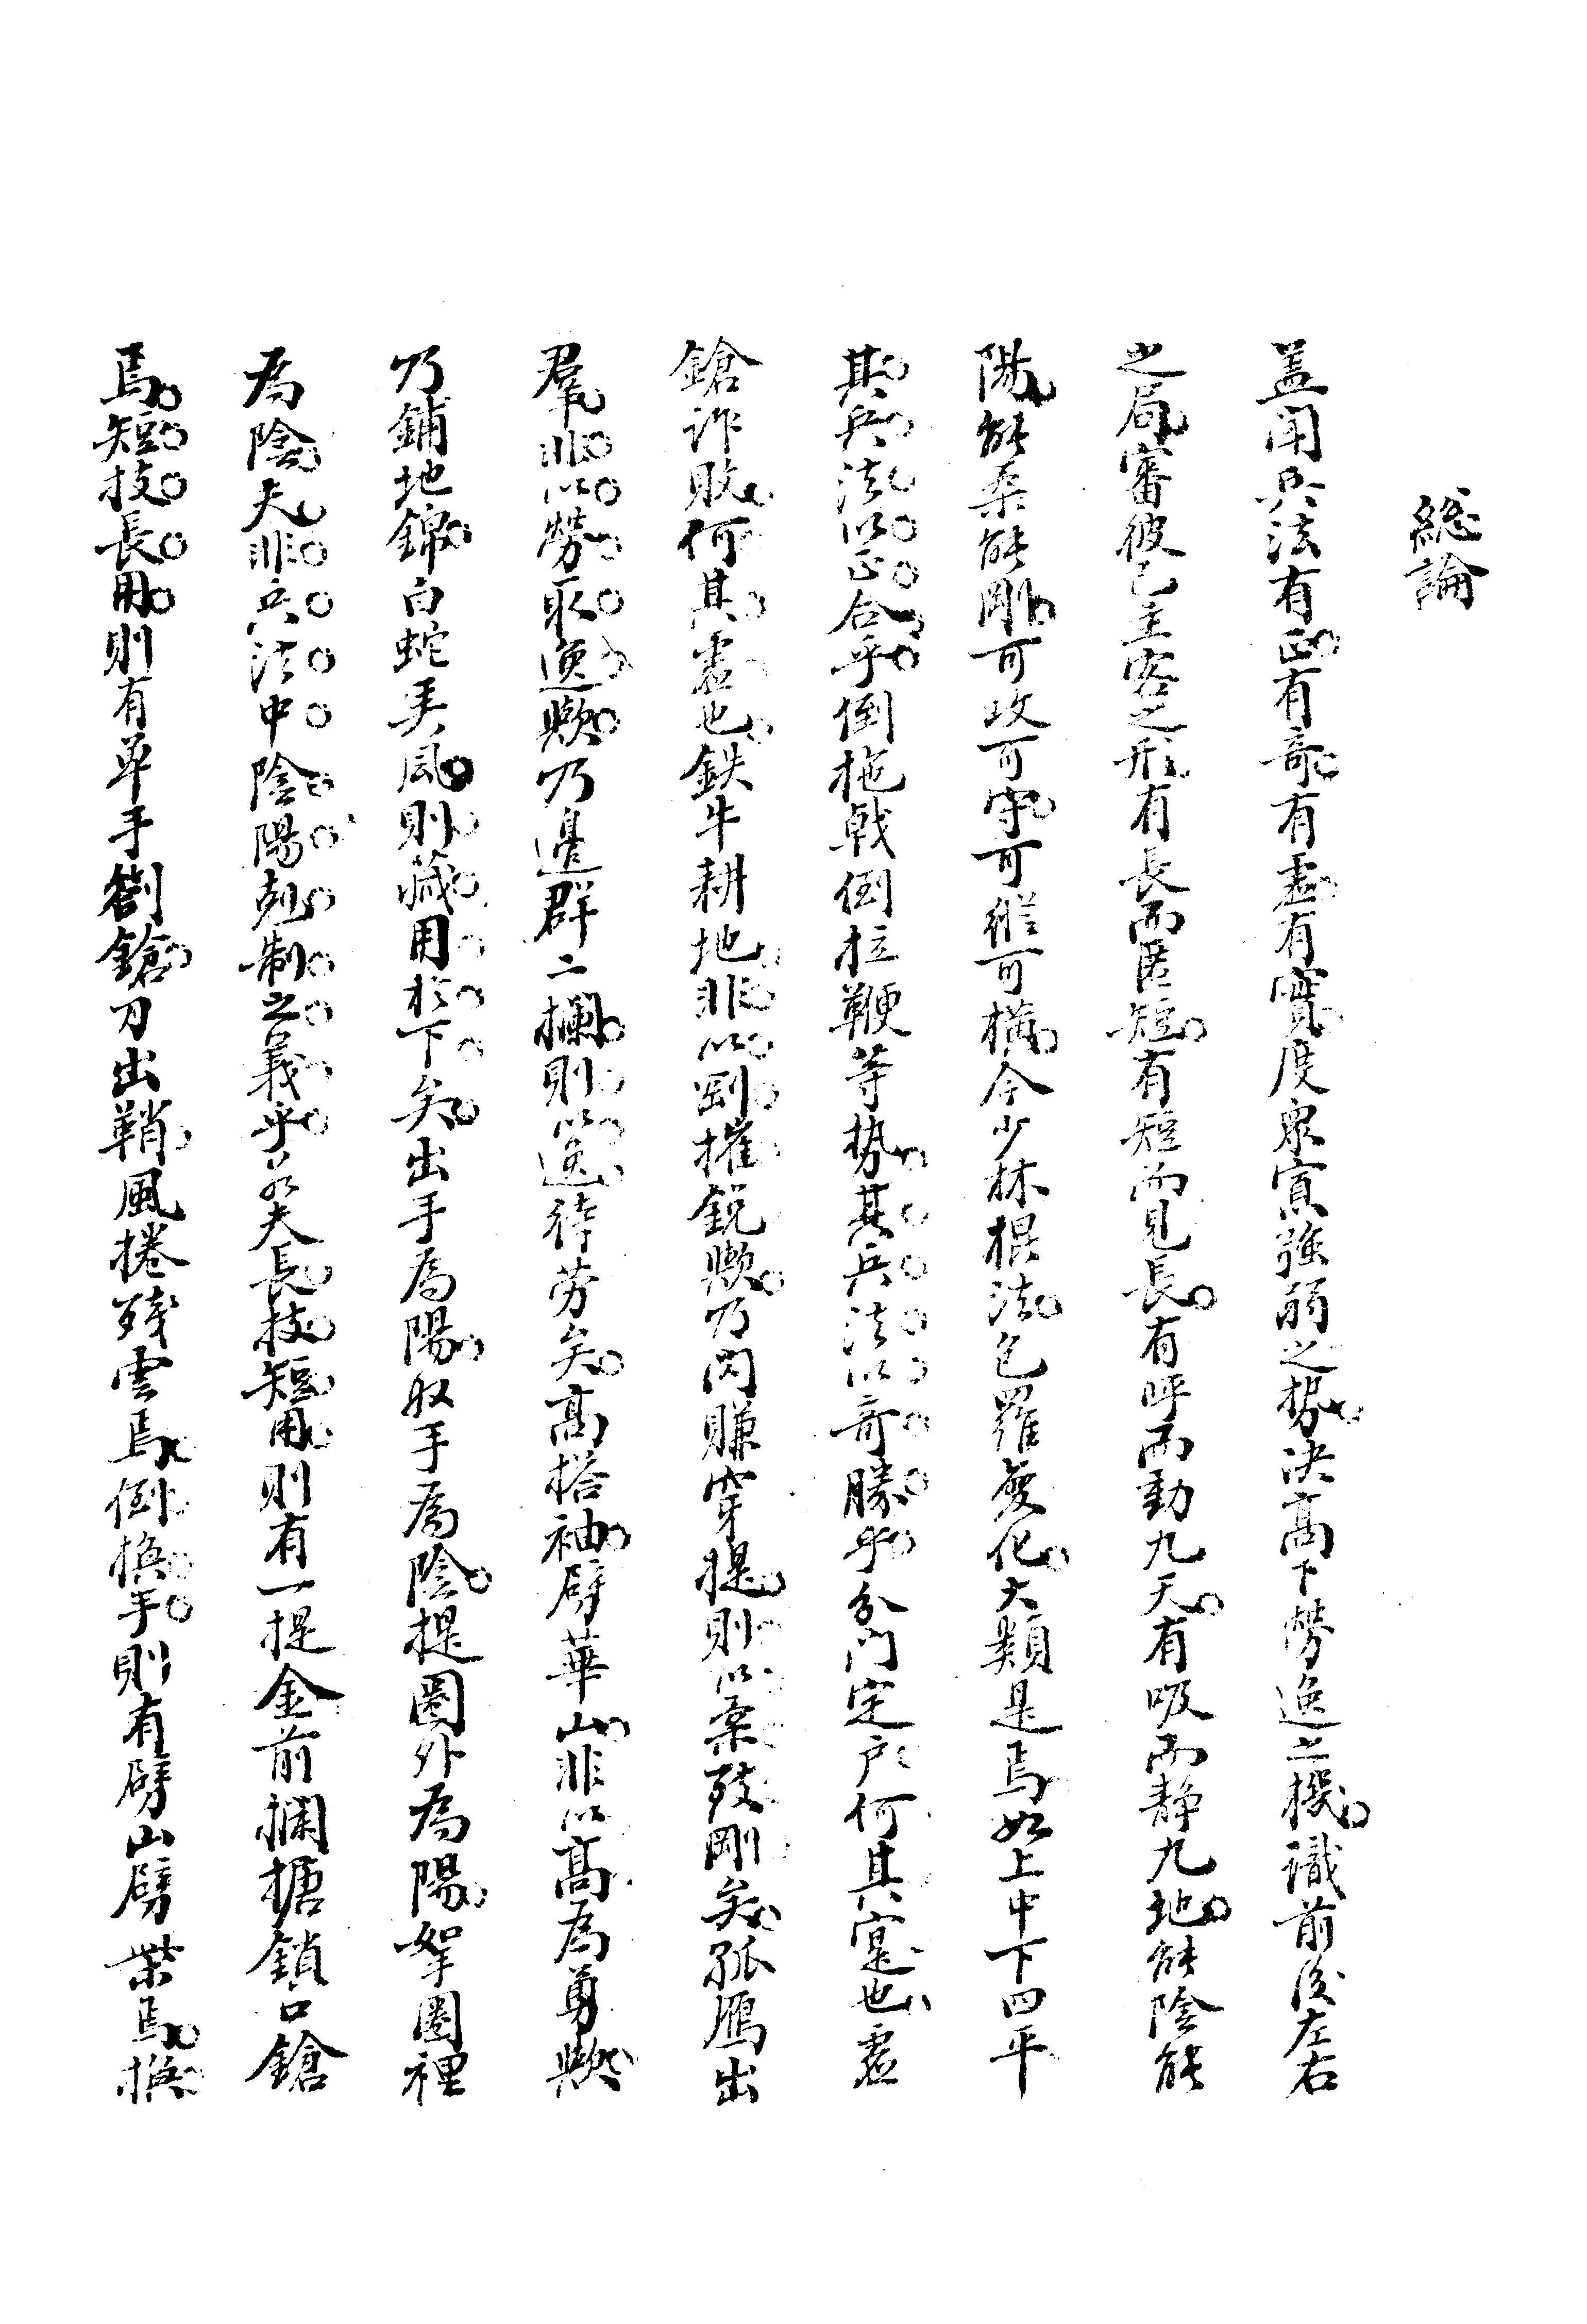 総論
盖聞兵法有正有奇有虚有實度衆寡強弱之勢决高下勞逸之機識前後左右
之局審彼己主客之形有長而匿短有短而見長有呼而動九天有吸而静九地能陰能
陽能柔能剛可攻可守可縱可橫今少林棍法包羅變化大類是焉如上中下四平
其兵法以正合乎倒拖戟倒拉鞭等势其兵法以奇勝乎分門定户何其寔也虚
鎗詐敗何其虚也鉄牛耕地非以剛摧鋭歟乃閃賺穿提則以柔致剛矣孤鴈出
羣非以勞取逸歟乃邊群二攔則以逸待劳矣高搭袖劈華山非以高為勇歟
乃鋪地錦白蛇弄風則藏用於下矣出手為陽収手為陰提圈外為陽拏圈裡
為陰夫非兵法中陰陽剋制之義乎若夫長技短用則有一提金前攔搪鎖口鎗
焉短技長用則有单手劄鎗刀出鞘風捲殘雲焉倒换手則有劈山劈柴焉换